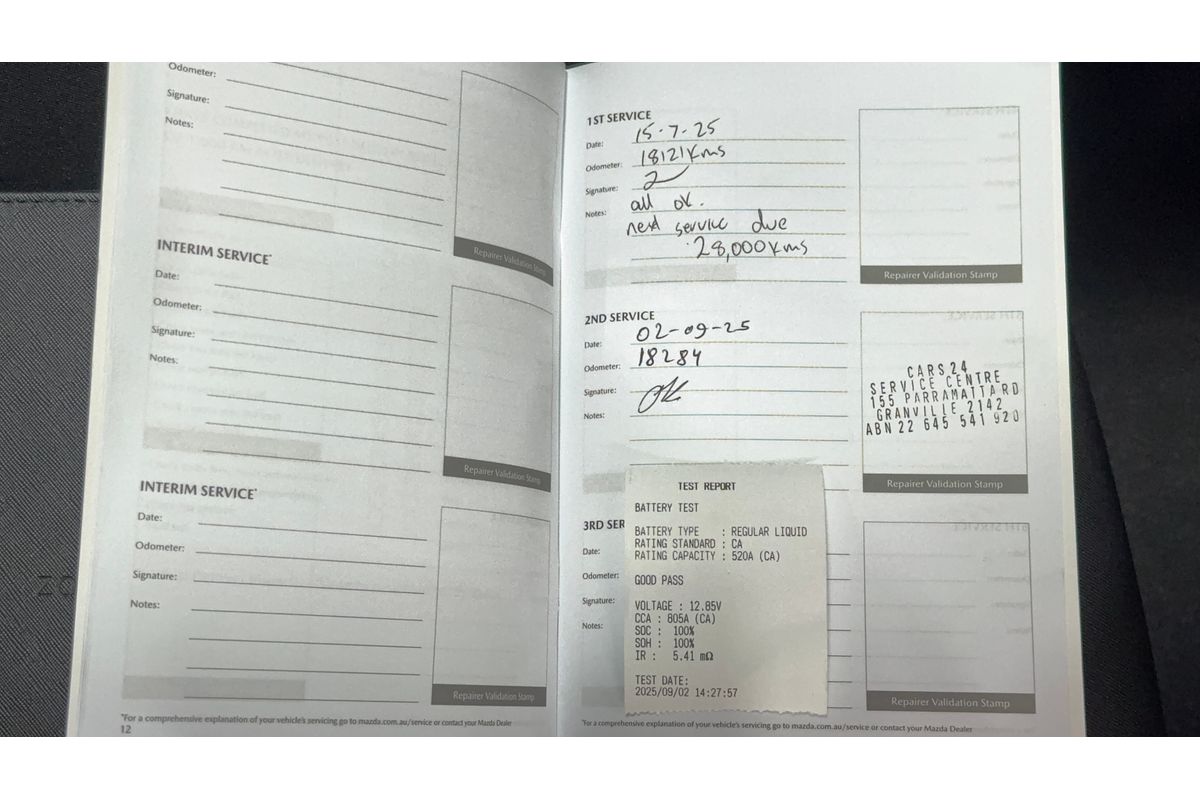 Odometer:
Signature:
Notes:
Repairer Validation Stamp
INTERIM SERVICE*
Date:
Odometer:
Signature:
Notes:
Repairer Validation Stamp
INTERIM SERVICE*
Date:
Odometer:
Signature:
Notes:
Repairer Validation Stamp
*For a comprehensive explanation of your vehicle's servicing go to mazda.com.au/service or contact your Mazda Dealer
12
1ST SERVICE
Date: 15-7-25
Odometer: 18121Kms
Signature:
Notes: all ok.
next service due
28,000Kms
Repairer Validation Stamp
2ND SERVICE
Date: 02-09-25
Odometer: 18284
Signature: OK
Notes:
CARS 24
SERVICE CENTRE
155 PARRAMATTA RD
GRANVILLE 2142
ABN 22 645 541 920
Repairer Validation Stamp
3RD SER
Date:
Odometer:
Signature:
Notes:
Repairer Validation Stamp
TEST REPORT
BATTERY TEST
BATTERY TYPE : REGULAR LIQUID
RATING STANDARD : CA
RATING CAPACITY : 520A (CA)
GOOD PASS
VOLTAGE : 12.85V
CCA : 805A (CA)
SOC : 100%
SOH : 100%
IR : 5.41 mΩ
TEST DATE:
2025/09/02 14:27:57
*For a comprehensive explanation of your vehicle's servicing go to mazda.com.au/service or contact your Mazda Dealer